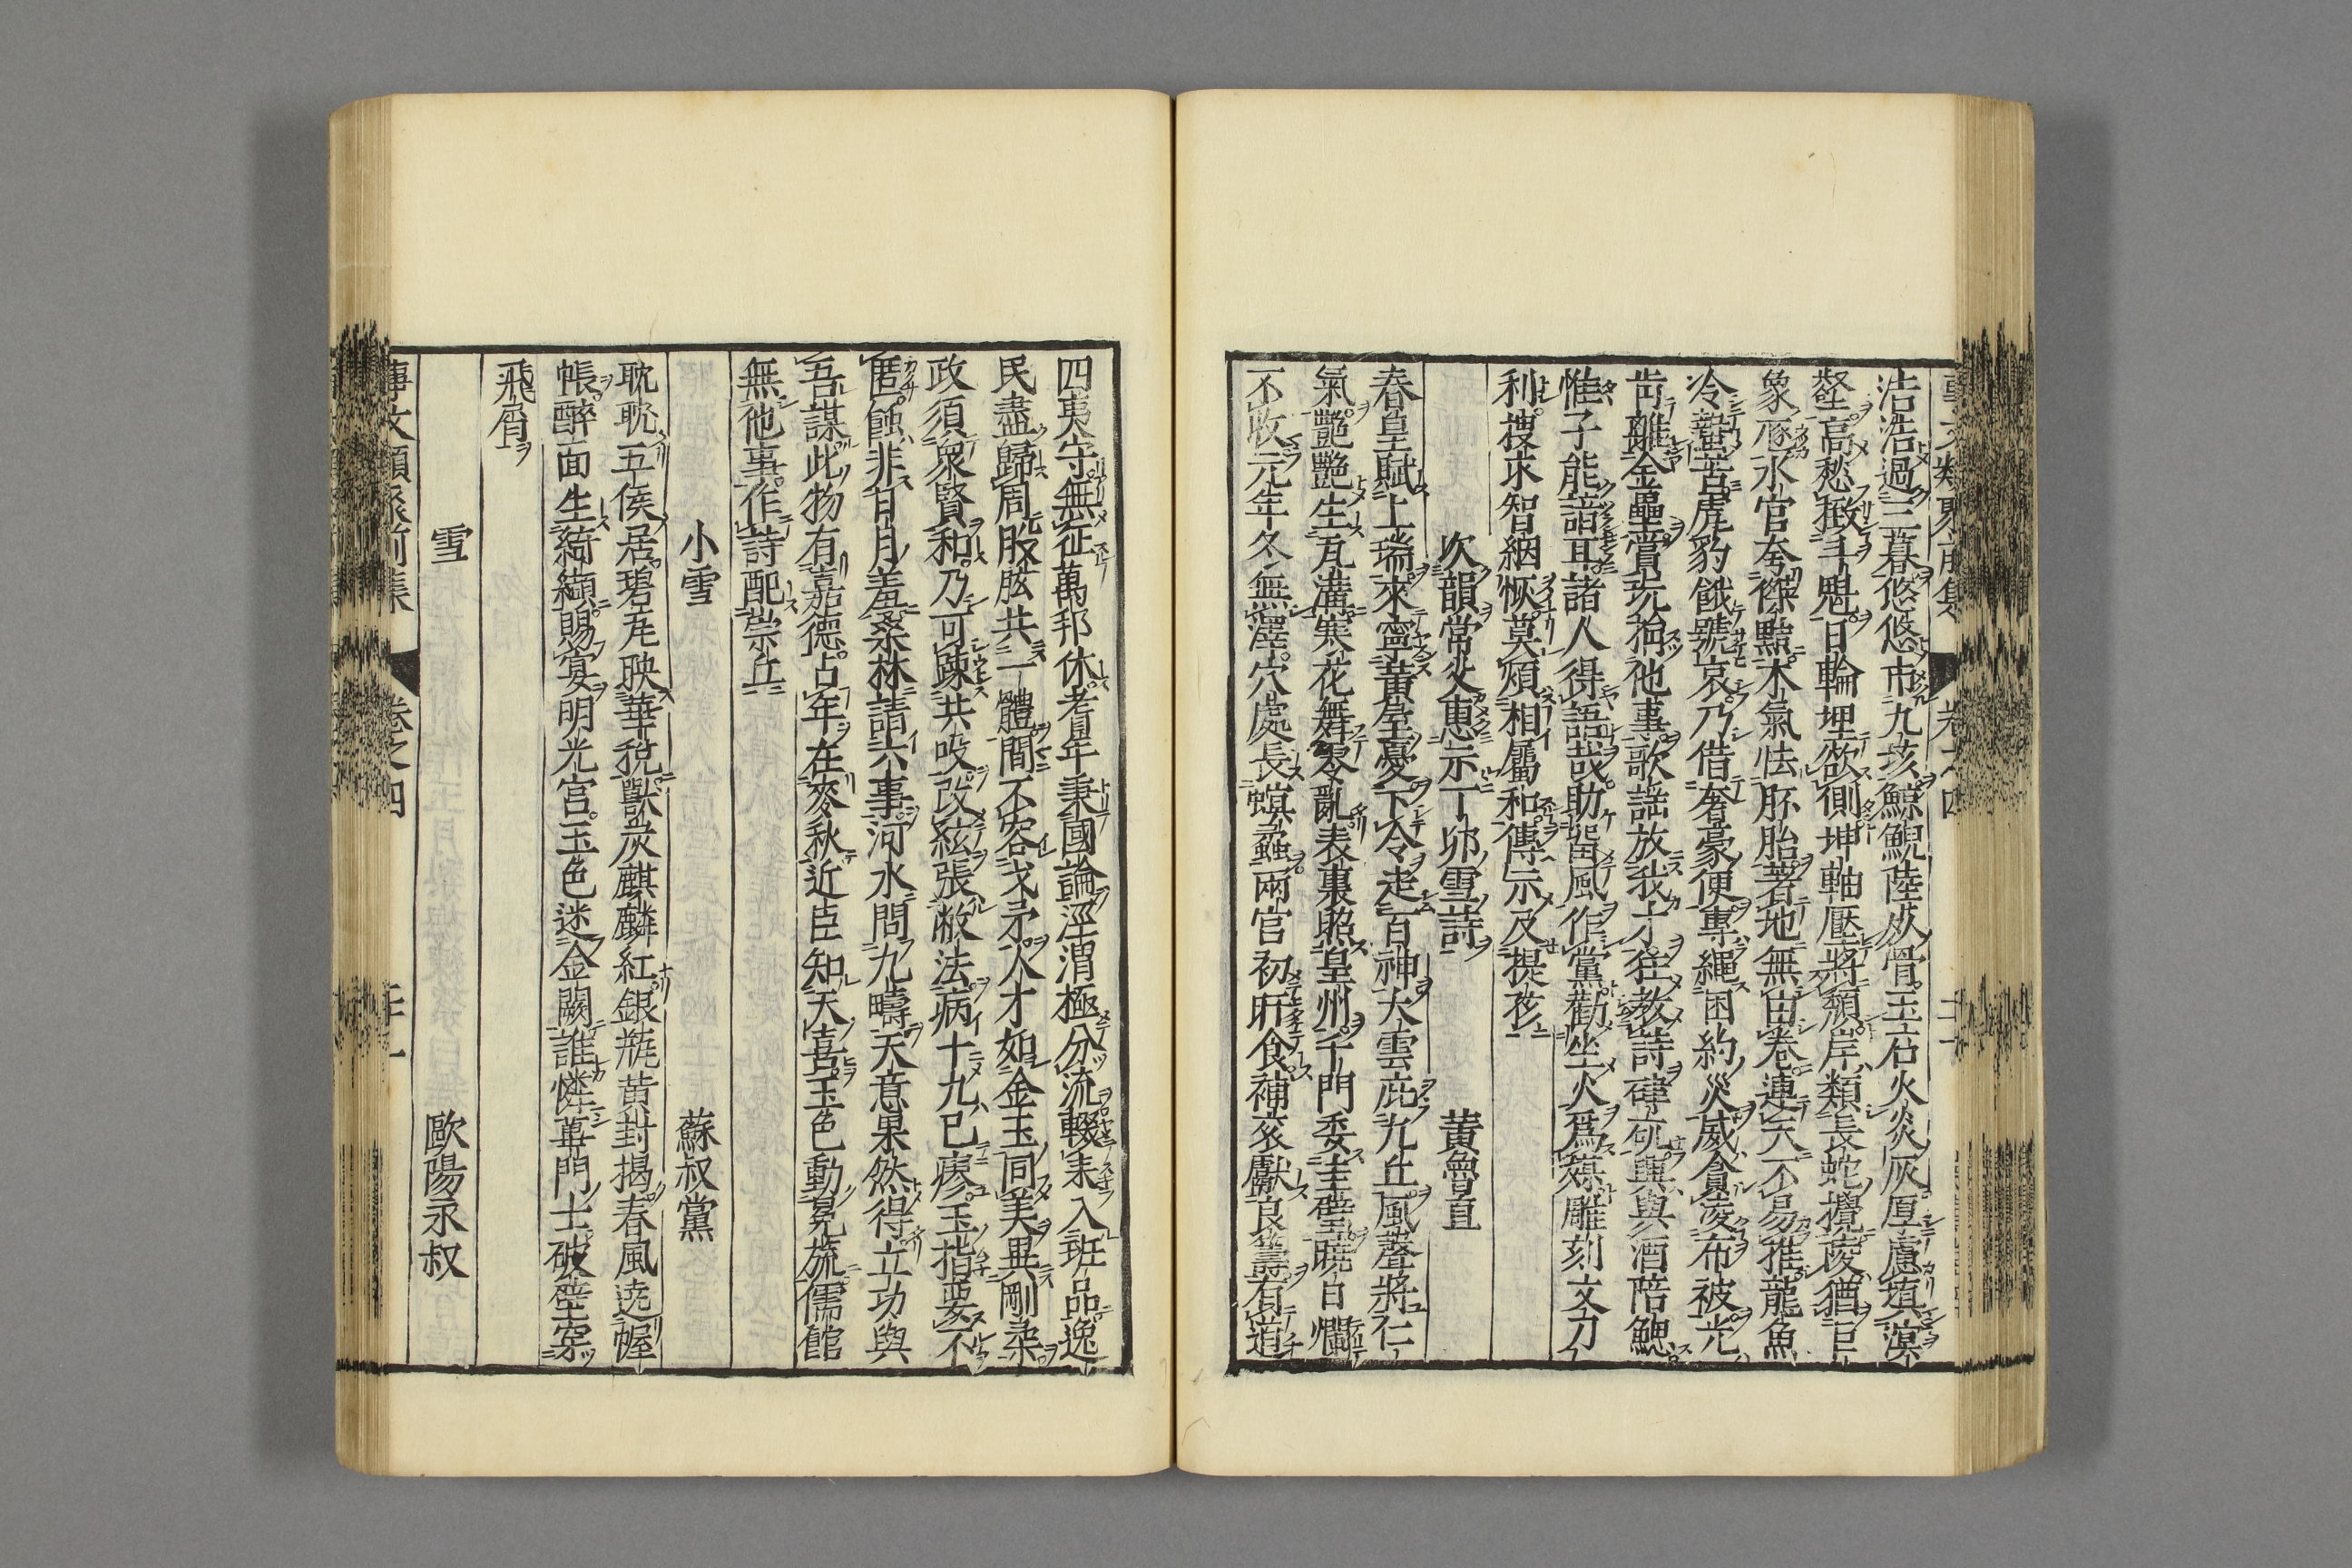 事文類聚前集 卷之四
浩浩過三暮悠悠市九垓鯨鯢陸死骨玉石火炎灰厚慮塡溟
壑高愁撥斗魁日輪埋欲側坤軸壓將頽岸類長蛇攪陵猶巨
象豗水官夸傑黠木氣怯胚胎著地無由卷連天不易推龍魚
冷蟄苦虎豹餓號哀乃借奢豪便專繩困約災威貪凌布被光
肯離金罍賞玩捐他事歌謠放我才狂教詩硉矹興與酒陪鰓
惟子能諳耳諸人得語哉助留風作黨勸坐火爲媒雕刻文刀
利搜求智網恢莫煩相屬和傳示及提孩
次韻常父惠示丁卯雪詩 黄魯直
春皇賦上瑞來寧黄屋憂下令走百神大雲庇九丘風聲將仁
氣艷艷生瓦溝寒花舞零亂表裏照皇州千門委圭璧曉日爛
不收元年冬無澤穴處長螟蟊兩官初旰食補衮獻良籌有道
四夷守無征萬邦休耆年秉國論涇渭極分流輟耒入班品逸
民盡歸周股肱共一體間不容戈矛人才如金玉同美異剛柔
政須衆賢和乃可踈共吺改絃張敝法病十九已瘳玉指要不
匿蝕非日月羞桑林請六事河水問九疇天意果然得立功與
吾謀此物有嘉德占年在麥秋近臣知天喜玉色動冕旒儒館
無他事作詩配崇丘
小雪 蘇叔黨
耽耽五侯居碧瓦映華稅獸炭麒麟紅銀瓶黄封揭春風遶幄
帳醉面生綺纈賜宴明光宮玉色迷金闕誰憐蓽門士破壁穿
飛屑
雪 歐陽永叔
事文類聚前集 卷之四